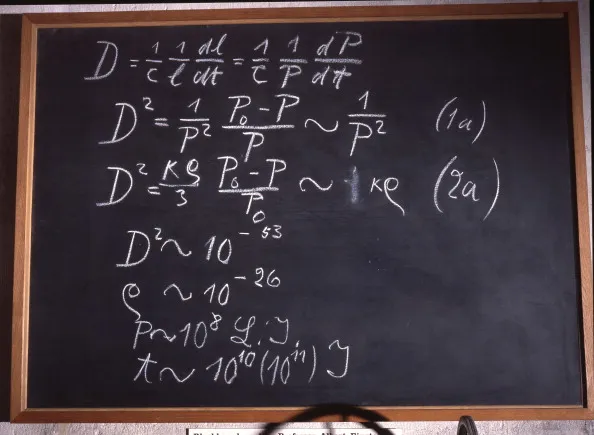 D = 1/c 1/l dl/dt = 1/c 1/P dP/dt
D² = 1/P² P₀-P/P ~ 1/P² (1a)
D² = κρ/3 P₀-P/P₀ ~ κρ (2a)
D² ~ 10⁻⁵³
ρ ~ 10⁻²⁶
P ~ 10⁸ L.J.
t ~ 10¹⁰(10¹¹) J